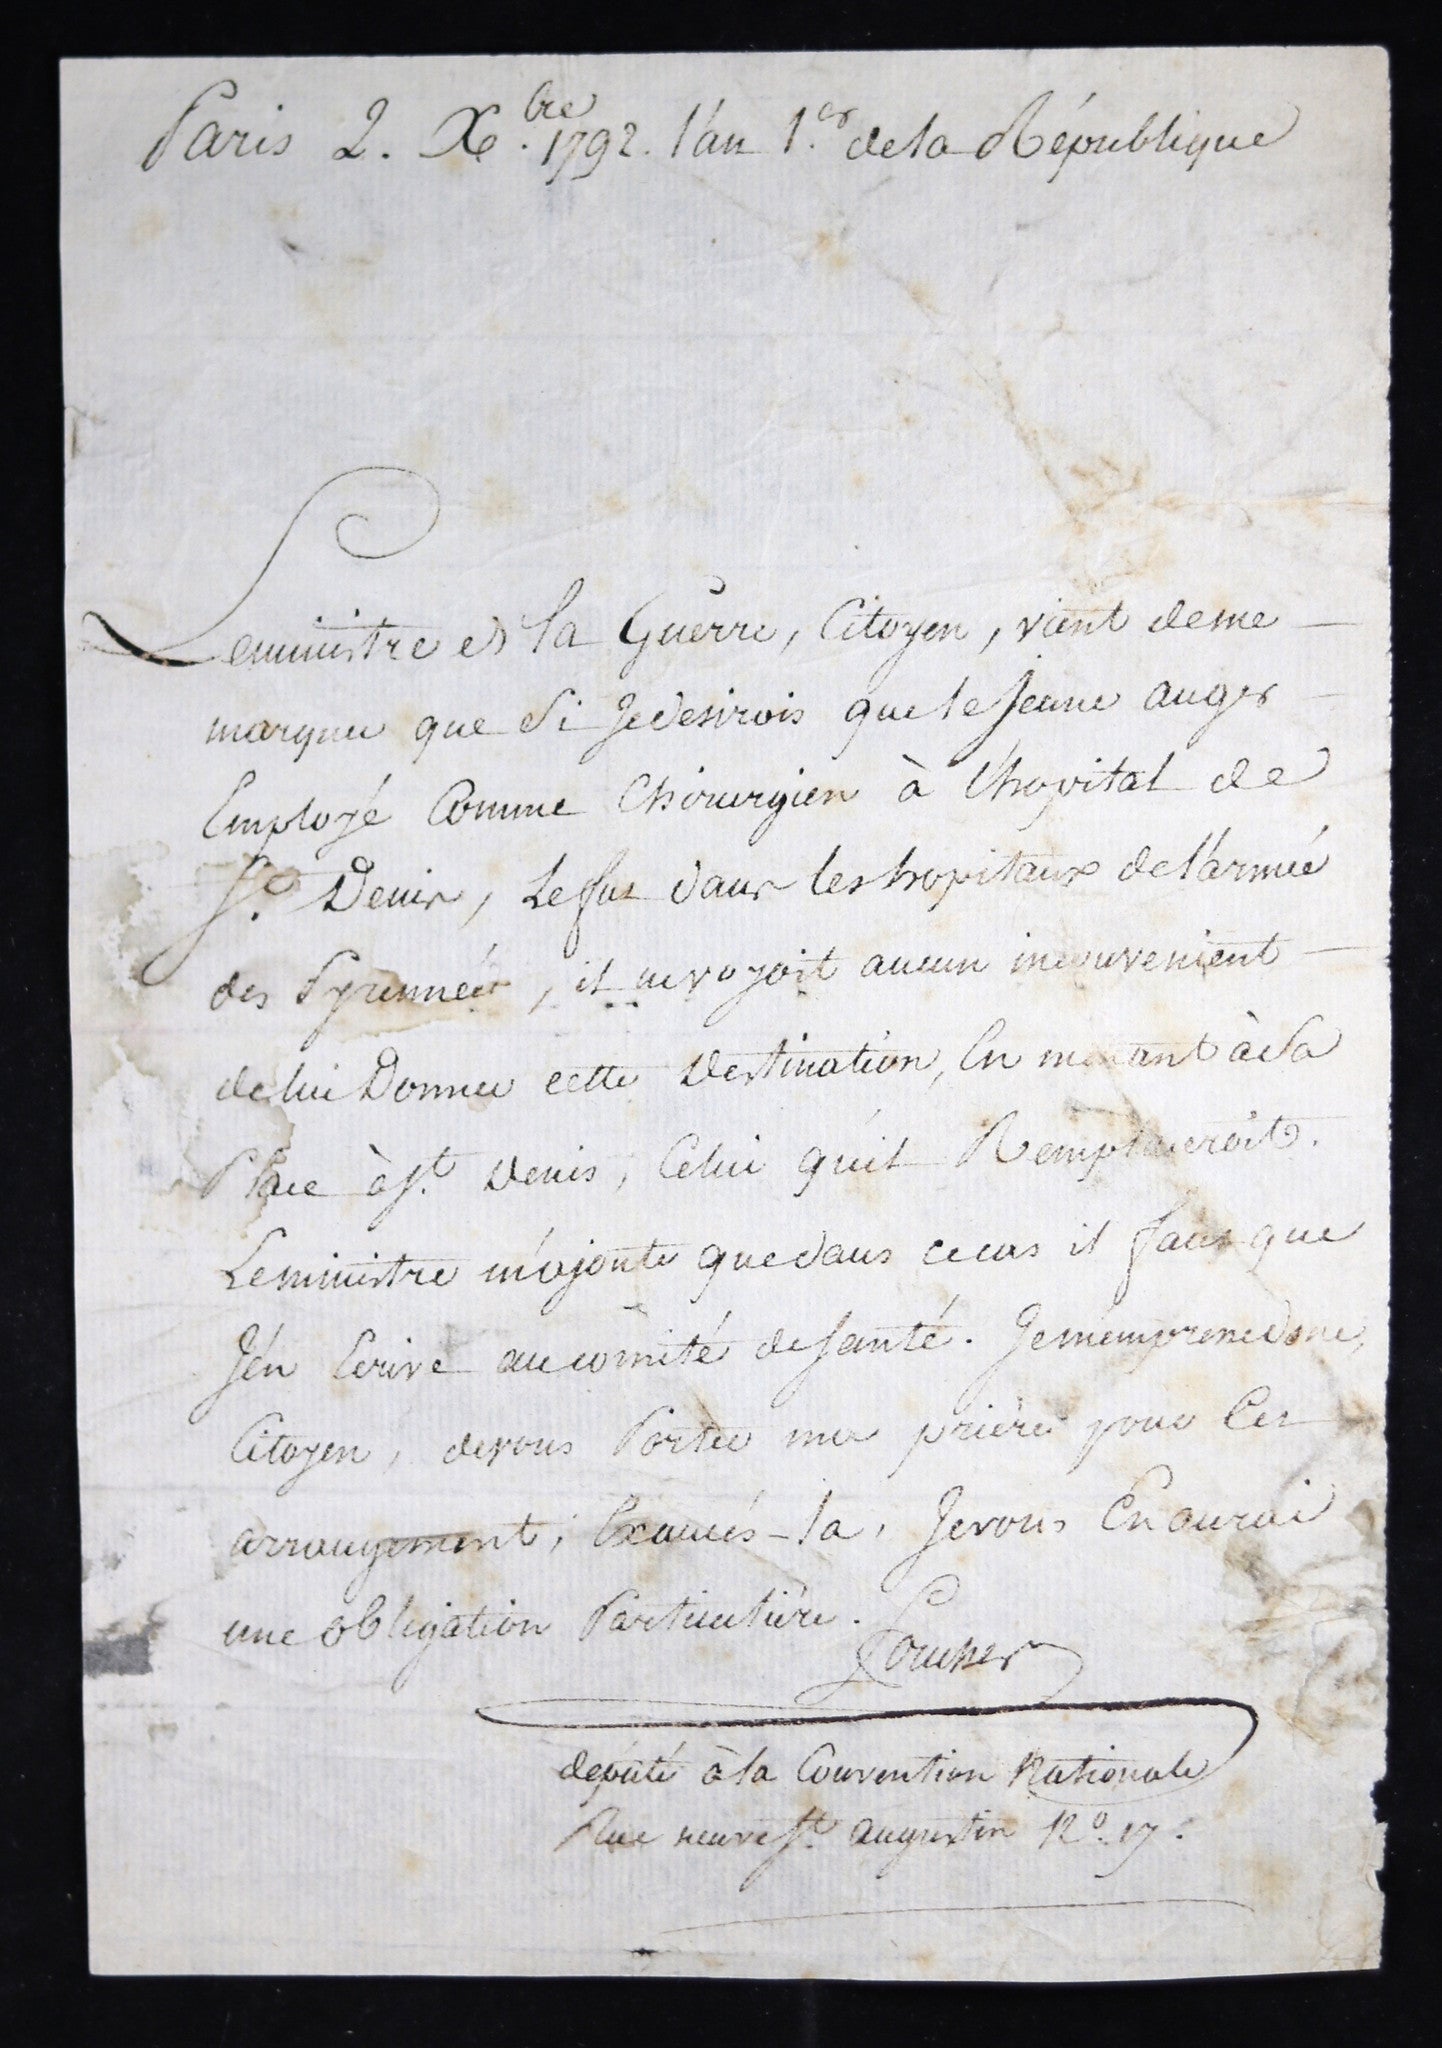 Paris 2. Xbre. 1792. l'an 1.er de la République
Le ministre de la Guerre, Citoyen, vient de me
marquer que si Je desirois que le Jeune auger
Employé Comme Chirurgien à l'hopital de
St. Denis, Le fut dans les hopitaux de l'armée
des Pyrennées, il ne voyoit aucun inconvenient
de lui Donner cette Destination, En mettant à sa
Place à St. Denis, Celui qu'il Remplaceroit.
Le ministre m'ajoute que dans ce cas il faut que
J'en Ecrive au comité de santé. Je m'empresse donc,
Citoyen, de vous Porter ma prière pour Cet
arrangement; Exaucés-la, Je vous En aurai
une obligation Particulière.
député à la Convention Nationale
Rue neuve St. augustin No. 17.